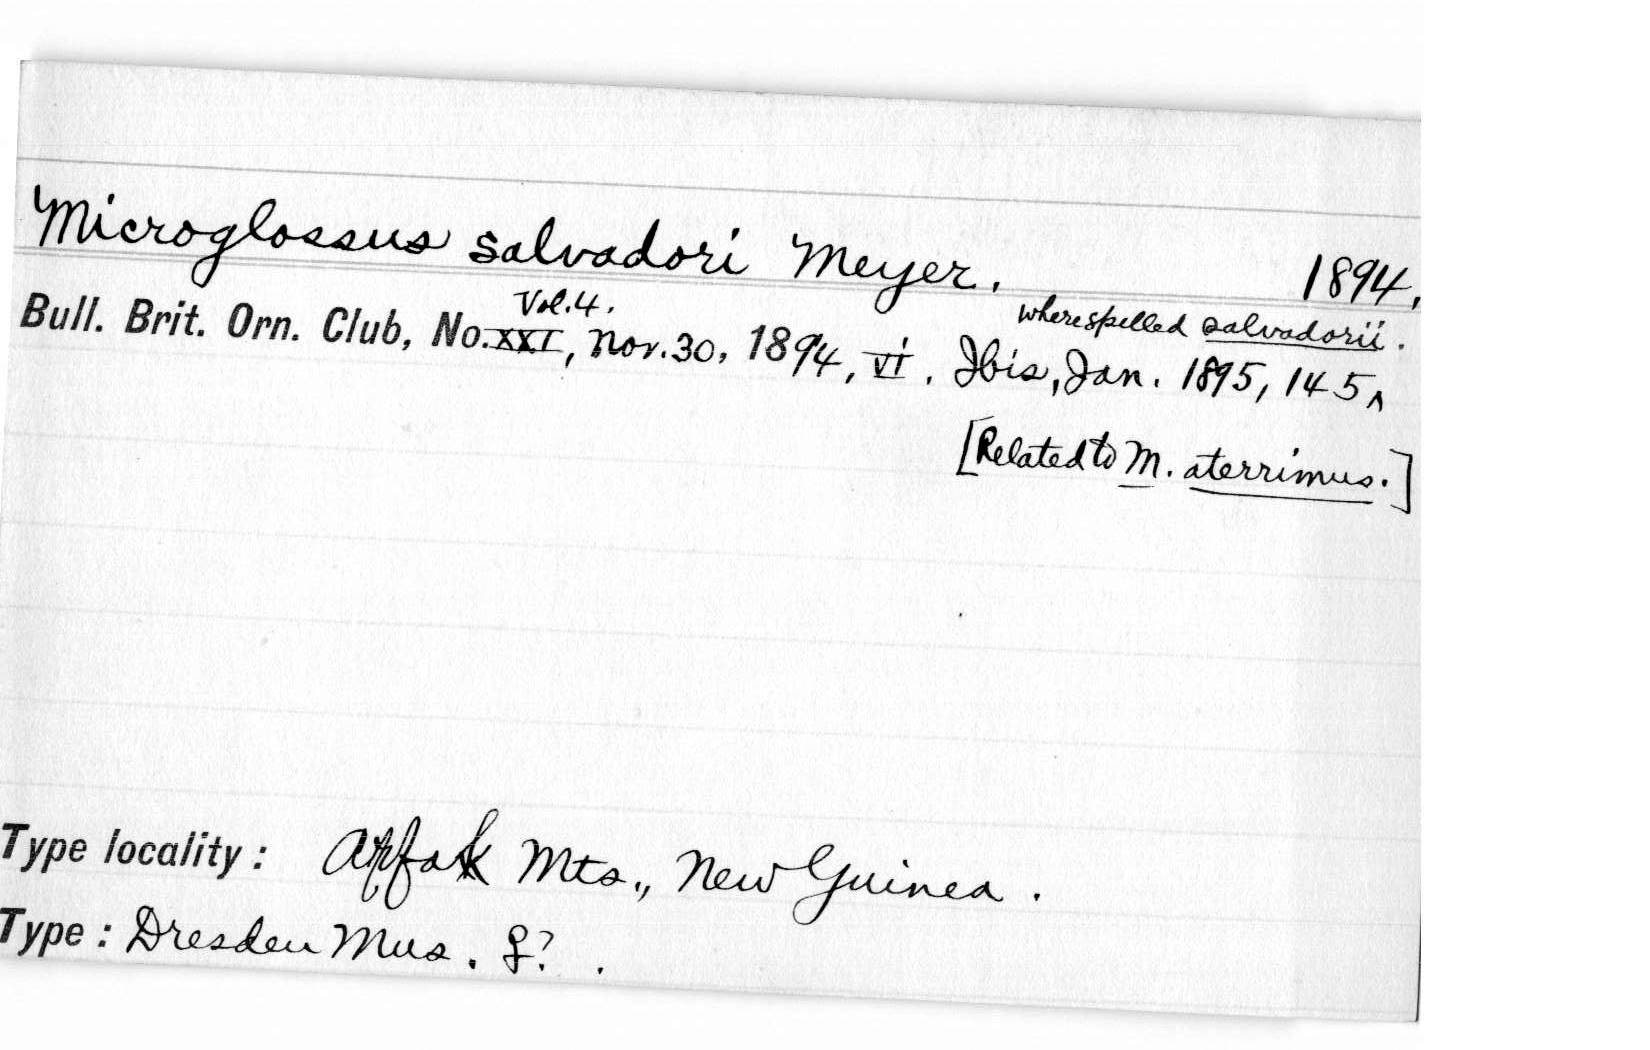 Microglossus salvadori Meyer. 1894.
Vol. 4. where spelled salvadorii.
Bull. Brit. Orn. Club, No. XXI, Nov. 30, 1894, vi. Ibis, Jan. 1895, 145^
[Related to M. aterrimus.]
Type locality: Arfak Mts., New Guinea.
Type: Dresden Mus. ♀?.